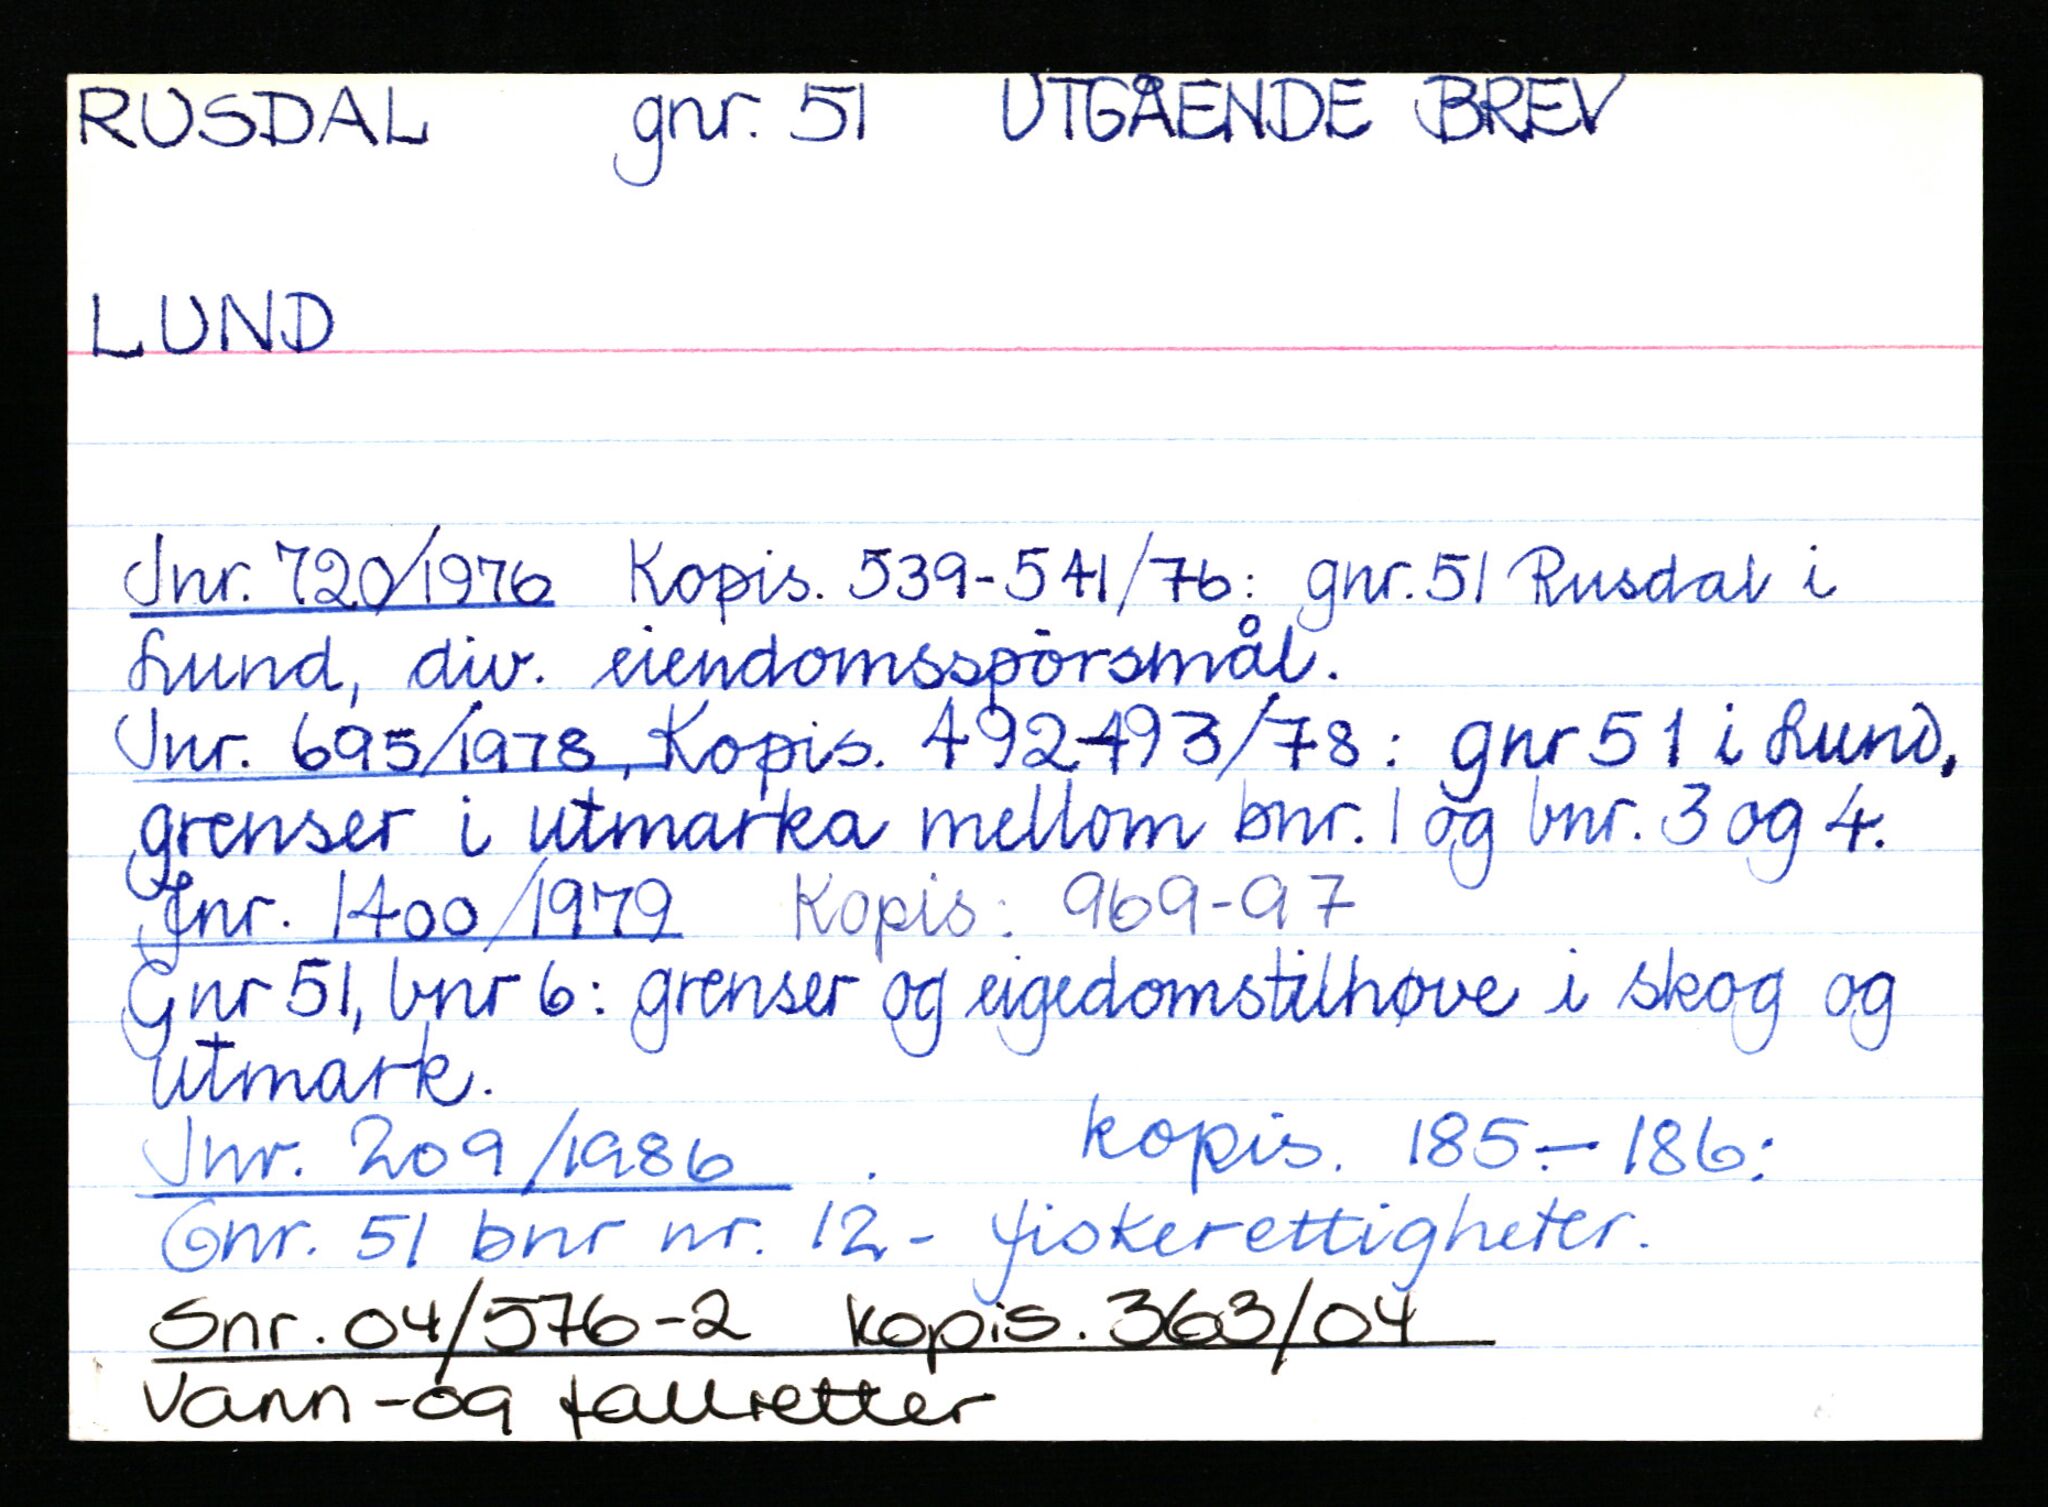 RUSDAL gnr. 51 UTGÅENDE BREV
LUND
Jnr. 720/1976 Kopis. 539-541/76: gnr. 51 Rusdal i
Lund, div. eiendomsspörsmål.
Jnr. 695/1978, Kopis. 492-493/78: gnr 51 i Lund,
grenser i utmarka mellom bnr. 1 og bnr. 3 og 4.
Jnr. 1400/1979 Kopis: 969-97
Gnr 51, bnr 6: grenser og eigedomstilhøve i skog og
utmark.
Jnr. 209/1986 . kopis. 185.-186:
Gnr. 51 bnr nr. 12- fiskerettigheter.
Snr. 04/576-2 kopis. 363/04
Vann-og fallretter